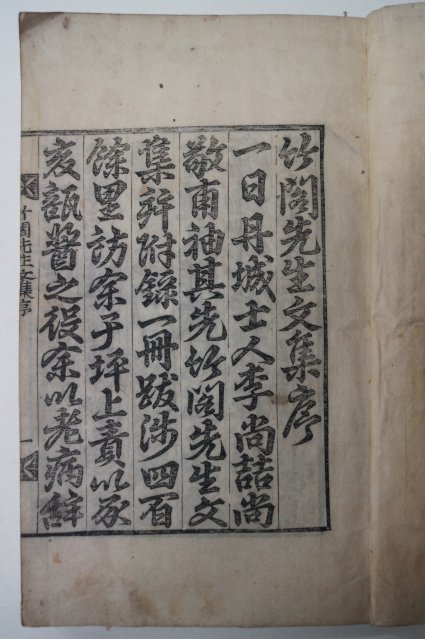 竹閣先生文集序
一日丹城士人李尚喆尚
敬甫袖其先竹閣先生文
集并附錄一冊跋涉四百
餘里訪余于坪上責以灰
瓿醬之役余以老病辭
竹閣先生文集序
一